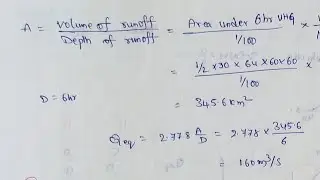 A = Volume of runoff / Depth of runoff = Area under 6hr UHG / 1/100 ×
= 1/2 × 30 × 64 × 60×60 / 1/100 ×
D = 6hr
= 345.6 km²
Qeq = 2.778 A/D = 2.778 × 345.6/6
= 160 m³/s